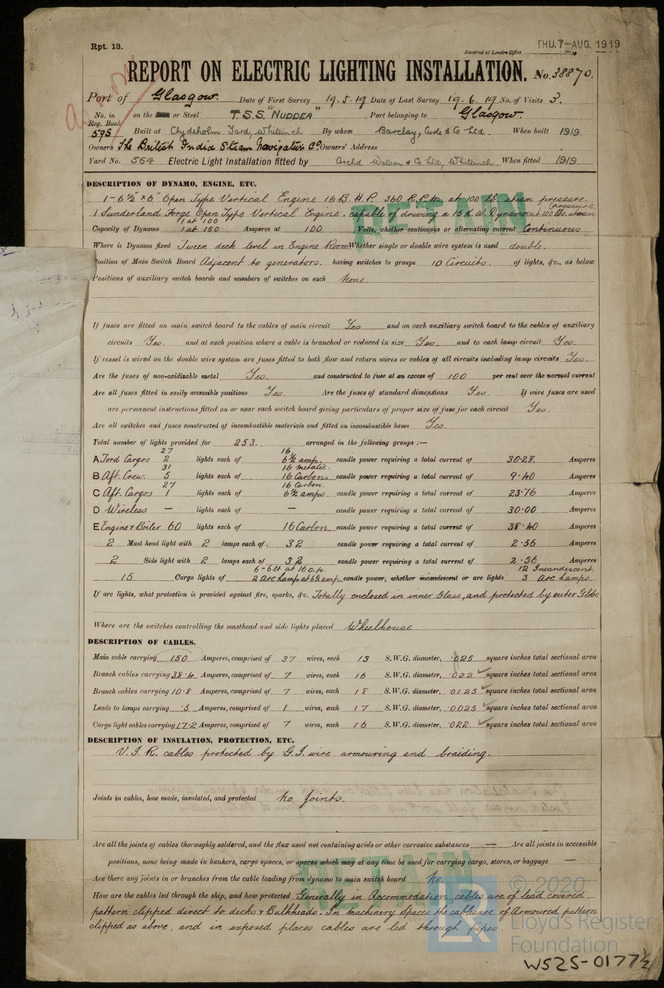 Rpt. 13.
Received at London Office THU. 7-AUG. 1919
REPORT ON ELECTRIC LIGHTING INSTALLATION. No. 38870.
Port of Glasgow. Date of First Survey 19.5.19 Date of Last Survey 19.6.19 No. of Visits 3.
No. in on the Iron or Steel T.S.S. "NUDDEA" Port belonging to Glasgow.
Reg. Book
595 Built at Clydeholm Yard, Whiteinch By whom Barclay, Curle & Co Ltd. When built 1919
Owners The British India Steam Navigation Co. Owners' Address
Yard No. 564 Electric Light Installation fitted by Archd Watson & Co Ltd, Whiteinch. When fitted 1919
DESCRIPTION OF DYNAMO, ENGINE, ETC.
1-6½" x 6" Open Type Vertical Engine 16 B.H.P. 360 R.P.M. at 100 lb steam pressure.
1 Sunderland Forge Open Type Vertical Engine, capable of driving a 15 K.W. Dynamo at 100 lb. steam pressure.
1 at 100
Capacity of Dynamo 1 at 150 Amperes at 100 Volts, whether continuous or alternating current Continuous
Where is Dynamo fixed Tween deck level in Engine Room Whether single or double wire system is used double.
Position of Main Switch Board Adjacent to generators. having switches to groups 10 Circuits. of lights, &c., as below
Positions of auxiliary switch boards and numbers of switches on each None
If fuses are fitted on main switch board to the cables of main circuit Yes and on each auxiliary switch board to the cables of auxiliary
circuits Yes. and at each position where a cable is branched or reduced in size Yes. and to each lamp circuit Yes.
If vessel is wired on the double wire system are fuses fitted to both flow and return wires or cables of all circuits including lamp circuits Yes.
Are the fuses of non-oxidizable metal Yes. and constructed to fuse at an excess of 100 per cent over the normal current
Are all fuses fitted in easily accessible positions Yes. Are the fuses of standard dimensions Yes. If wire fuses are used
are permanent instructions fitted on or near each switch board giving particulars of proper size of fuse for each circuit Yes.
Are all switches and fuses constructed of incombustible materials and fitted on incombustible bases Yes.
Total number of lights provided for 253. arranged in the following groups :—
27 16
A Ford Cargos 2 lights each of 6½ amp. candle power requiring a total current of 30.28 Amperes
31 16 metalic.
B Aft. Crew. 5 lights each of 16 Carbon. candle power requiring a total current of 9.40 Amperes
27 16 Carbon.
C Aft. Cargos 1 lights each of 6½ amps. candle power requiring a total current of 23.76 Amperes
D Wireless — lights each of — candle power requiring a total current of 30.00 Amperes
E Engine & Boiler 60 lights each of 16 Carbon candle power requiring a total current of 38.40 Amperes
2 Mast head light with 2 lamps each of 32 candle power requiring a total current of 2.56 Amperes
2 Side light with 2 lamps each of 32 candle power requiring a total current of 2.56 Amperes
6-6 lt at 16 c.p. 12 Incandescent.
15 Cargo lights of 2 arc lamp at 6½ amp candle power, whether incandescent or arc lights 3 arc lamps.
If arc lights, what protection is provided against fire, sparks, &c. Totally enclosed in inner Glass, and protected by outer Globe
Where are the switches controlling the masthead and side lights placed Wheelhouse
DESCRIPTION OF CABLES.
Main cable carrying 150 Amperes, comprised of 37 wires, each 13 S.W.G. diameter, .025 square inches total sectional area
Branch cables carrying 38.4 Amperes, comprised of 7 wires, each 16 S.W.G. diameter, .022 square inches total sectional area
Branch cables carrying 10.8 Amperes, comprised of 7 wires, each 18 S.W.G. diameter, .0125 square inches total sectional area
Leads to lamps carrying .5 Amperes, comprised of 1 wires, each 17 S.W.G. diameter, .0025 square inches total sectional area
Cargo light cables carrying 17.2 Amperes, comprised of 7 wires, each 16 S.W.G. diameter, .022 square inches total sectional area
DESCRIPTION OF INSULATION, PROTECTION, ETC.
V.I.R. cables protected by G.I. wire armouring and braiding.
Joints in cables, how made, insulated, and protected No Joints.
Are all the joints of cables thoroughly soldered, and the flux used not containing acids or other corrosive substances — Are all joints in accessible
positions, none being made in bunkers, cargo spaces, or spaces which may at any time be used for carrying cargo, stores, or baggage —
Are there any joints in or branches from the cable leading from dynamo to main switch board No
How are the cables led through the ship, and how protected Generally in Accommodation cables are of lead covered
pattern clipped direct to decks & Bulkheads. In machinery spaces the cables are of Armoured pattern
clipped as above, and in exposed places cables are led through pipes.
RETAIN
RETAIN
LR © 2020
Lloyd's Register
Foundation
W525-0177½